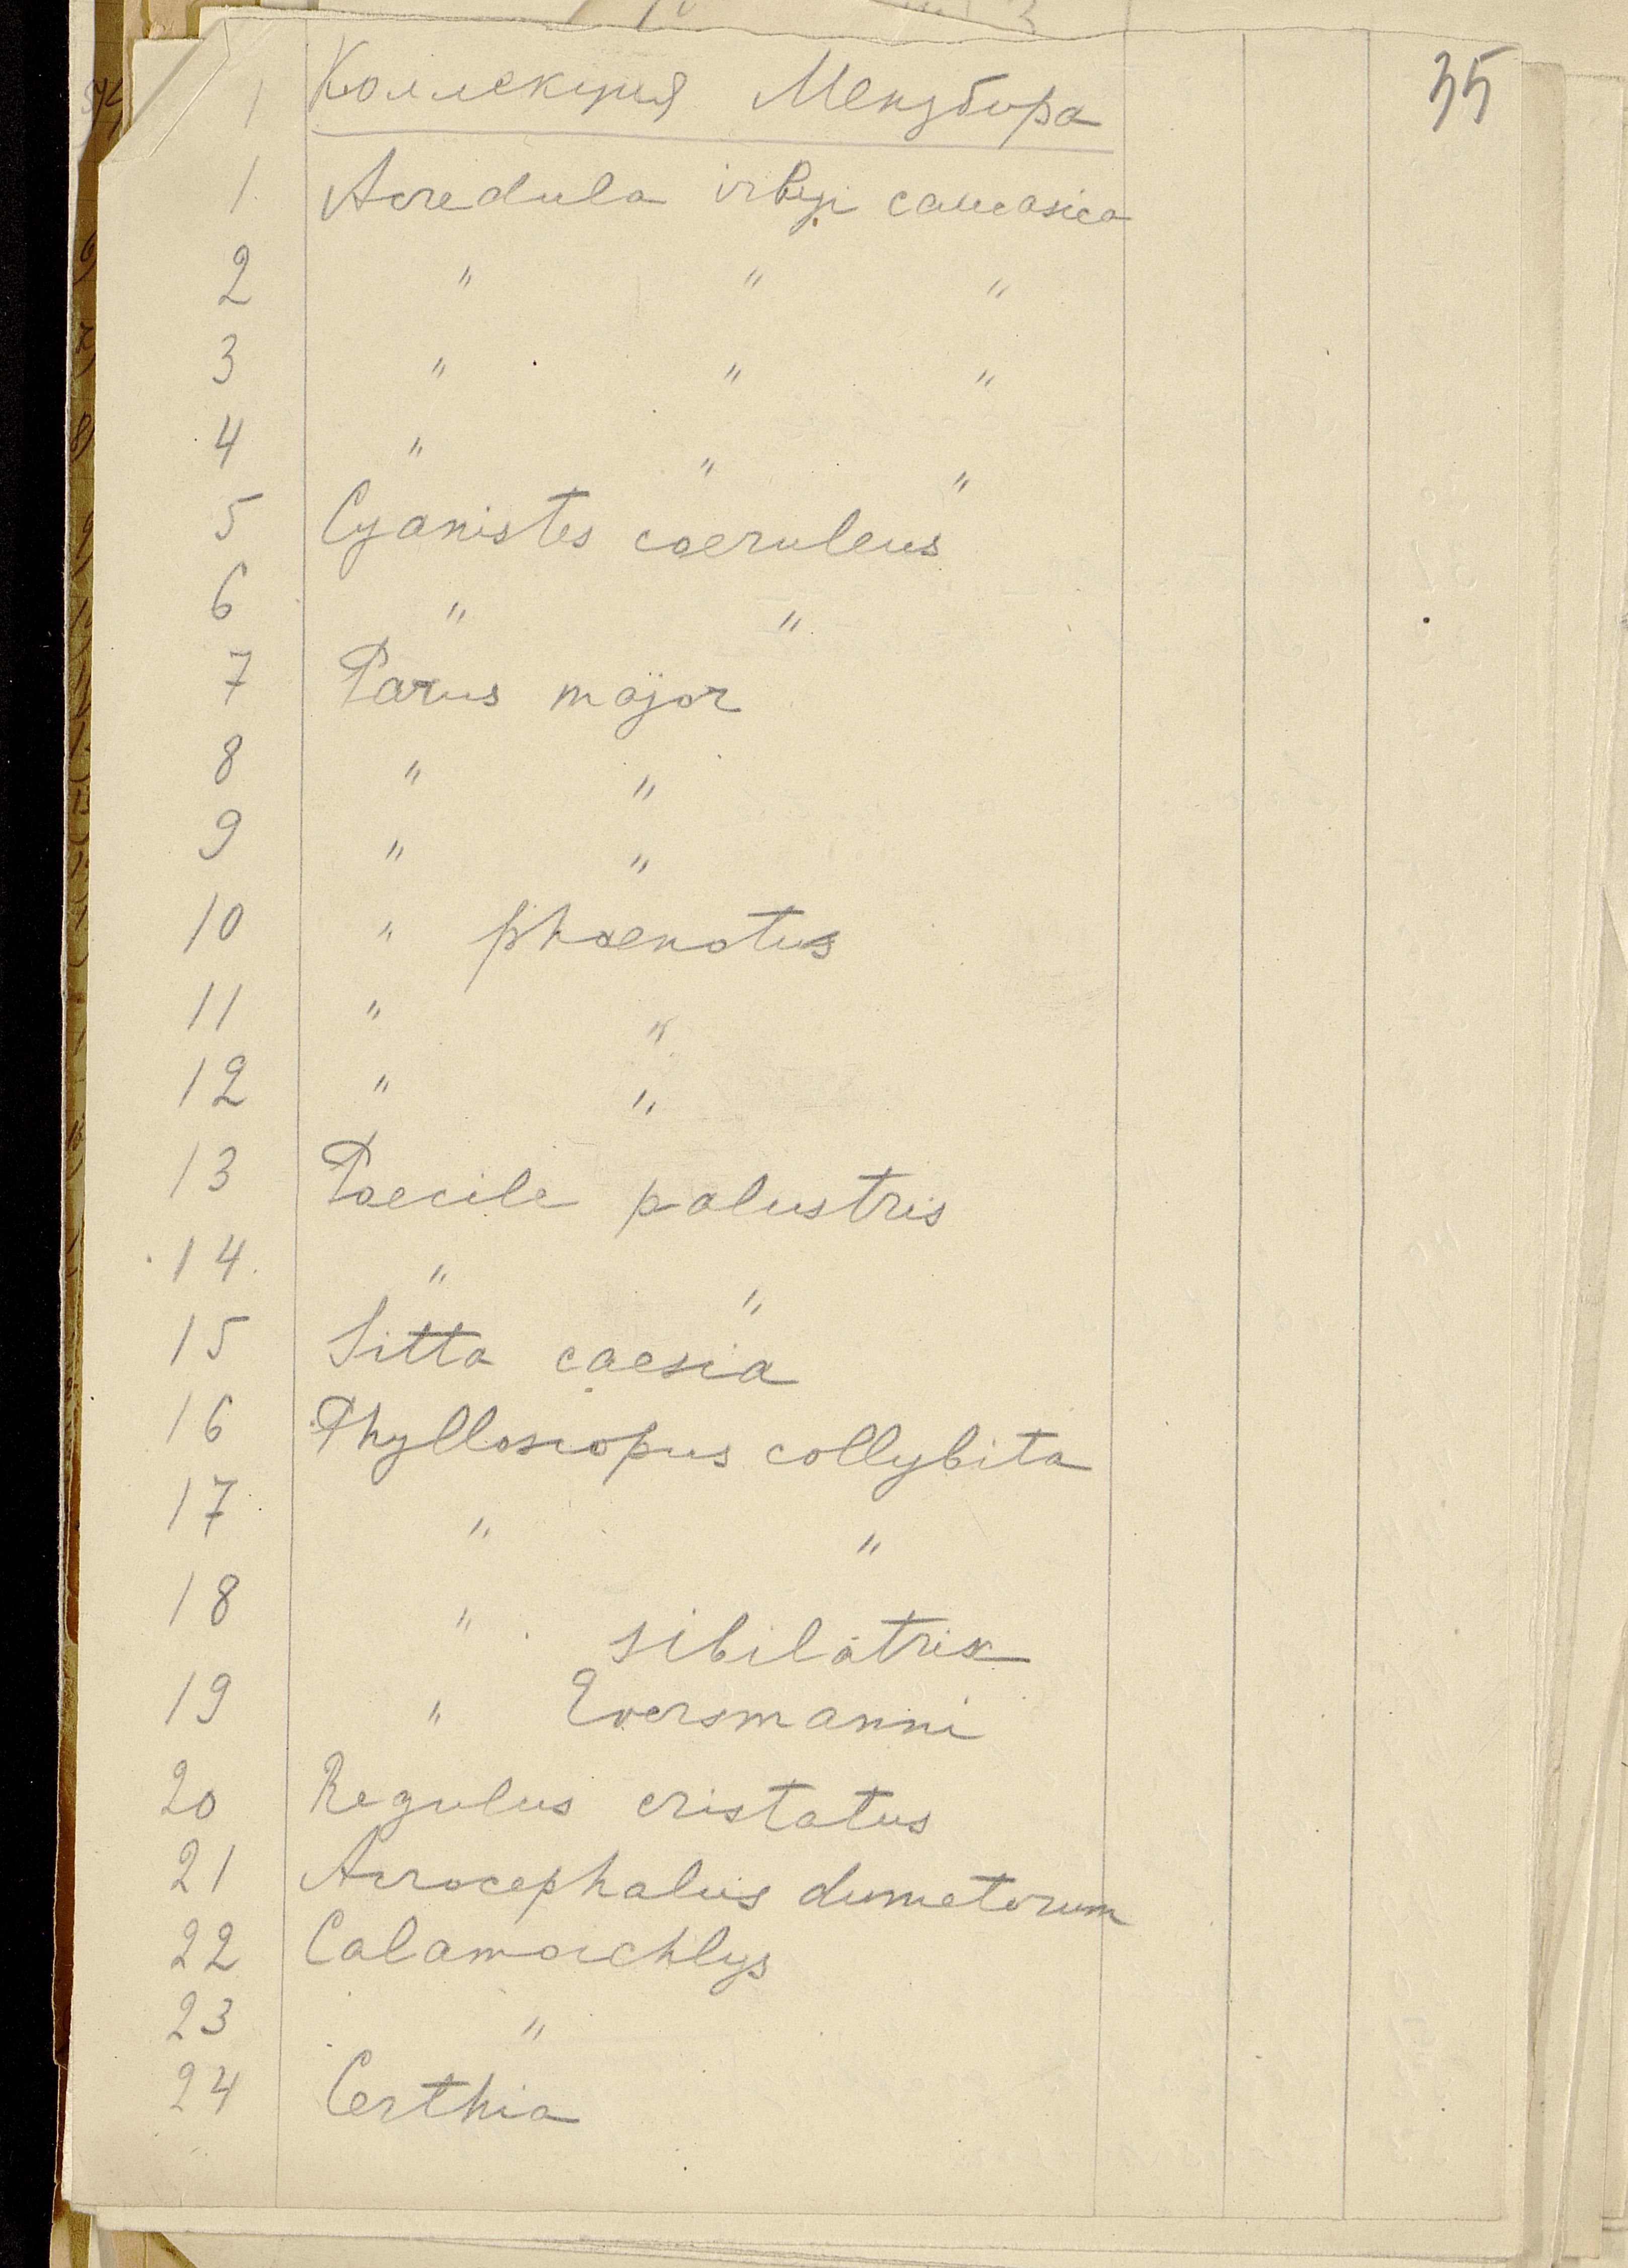 35
Коллекция Мензбира
1. Acredula irbyi caucasica
2 " " "
3 " " "
4 " " "
5 Cyanistes coeruleus
6 " "
7 Parus major
8 " "
9 " "
10 " phaenotus
11 " "
12 " "
13 Poecile palustris
14. " "
15 Sitta caesia
16 Phylloscopus collybita
17 " "
18 " sibilatrix
19 " Eversmanni
20 Regulus cristatus
21 Acrocephalus dumetorum
22 Calamoichlys
23 "
24 Certhia